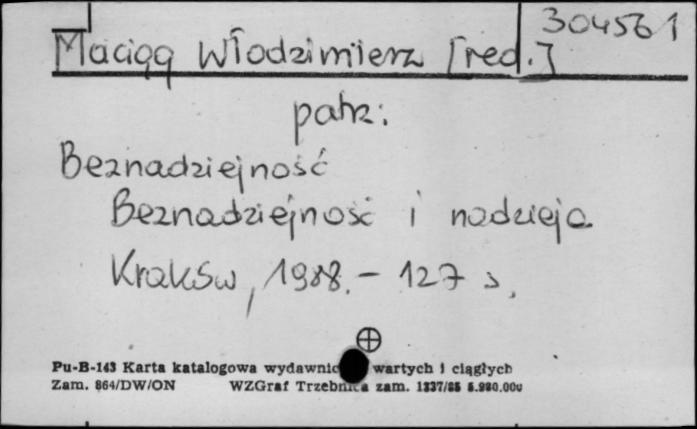 304561
Maciąg Włodzimierz [red.]
patrz:
Beznadziejność
Beznadziejność i nadzieja
Kraków, 1988. - 127 s.
Pu-B-143 Karta katalogowa wydawnic wartych i ciągłych
Zam. 864/DW/ON WZGraf Trzebnica zam. 1337/85 5.980.000